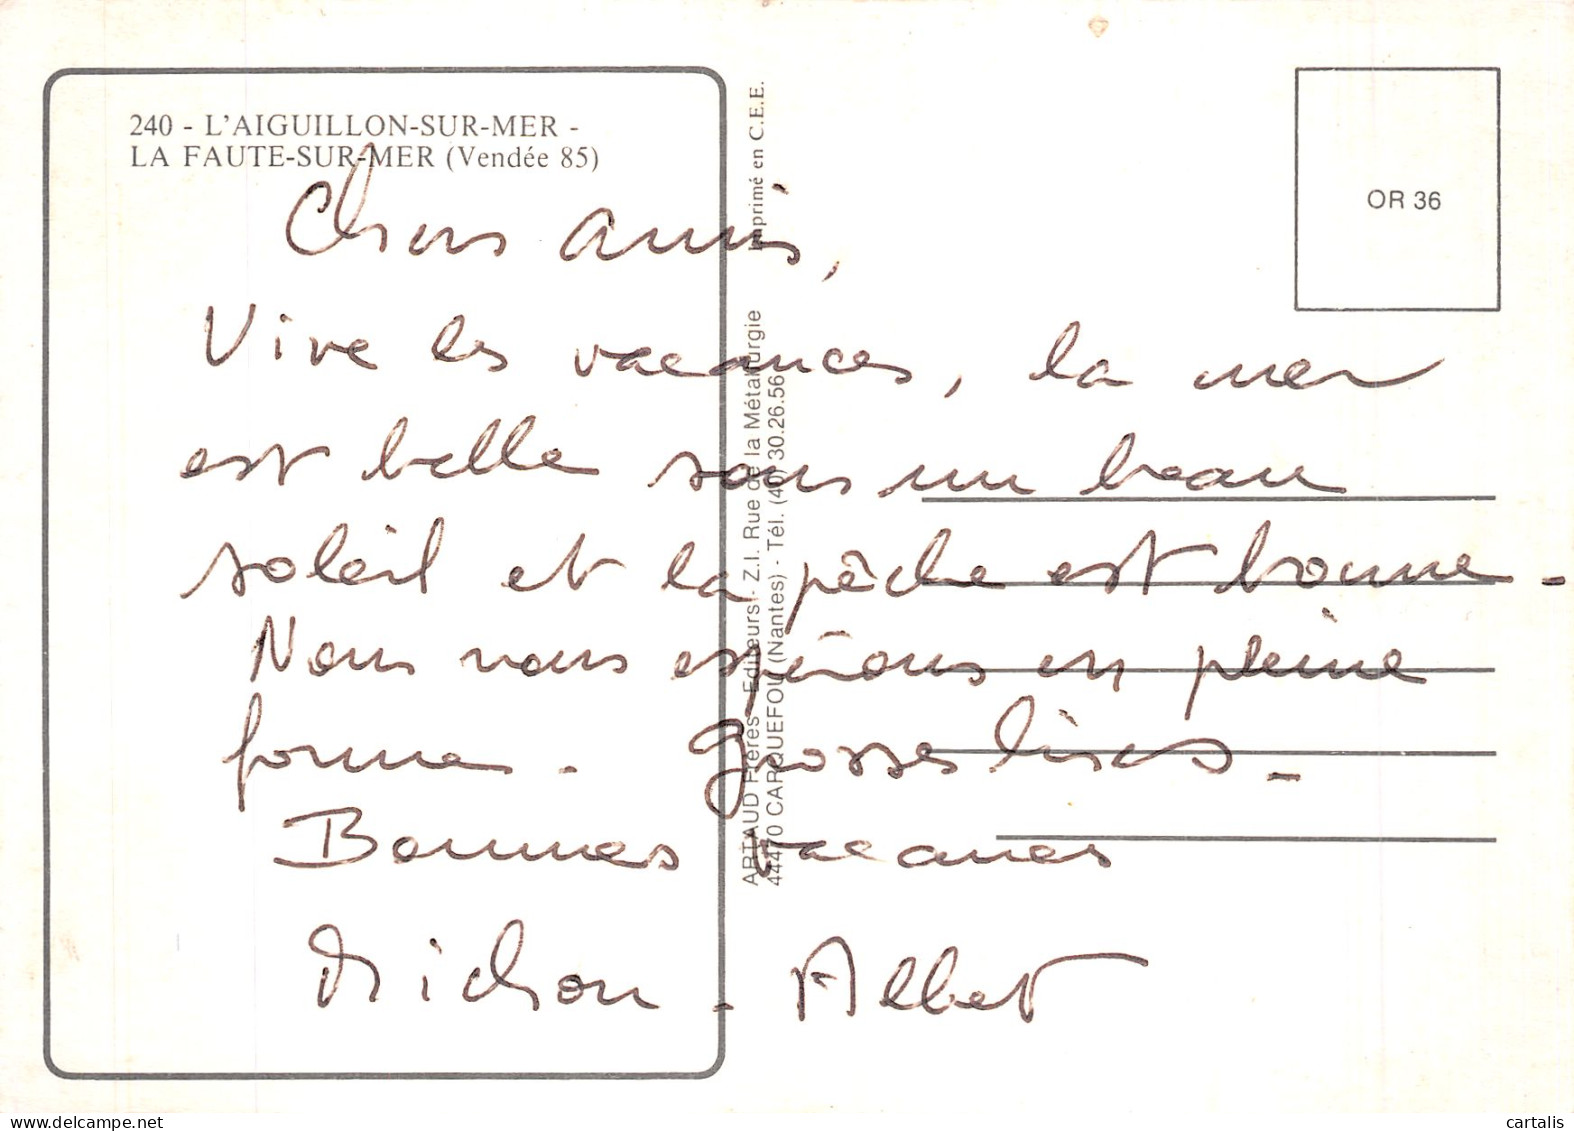 240 - L'AIGUILLON-SUR-MER -
LA FAUTE-SUR-MER (Vendée 85)
Chers amis,
Vive les vacances, la mer
est belle sous un beau
soleil et la pêche est bonne.
Nous vous espérons en pleine
forme. Grosses bises.
Bonnes vacances
Michou - Albert
ARTAUD Frères - Editeurs - Z.I. Rue de la Métallurgie
44470 CARQUEFOU (Nantes) - Tél. (40) 30.26.56
Imprimé en C.E.E.
OR 36
delcampe.net
cartalis